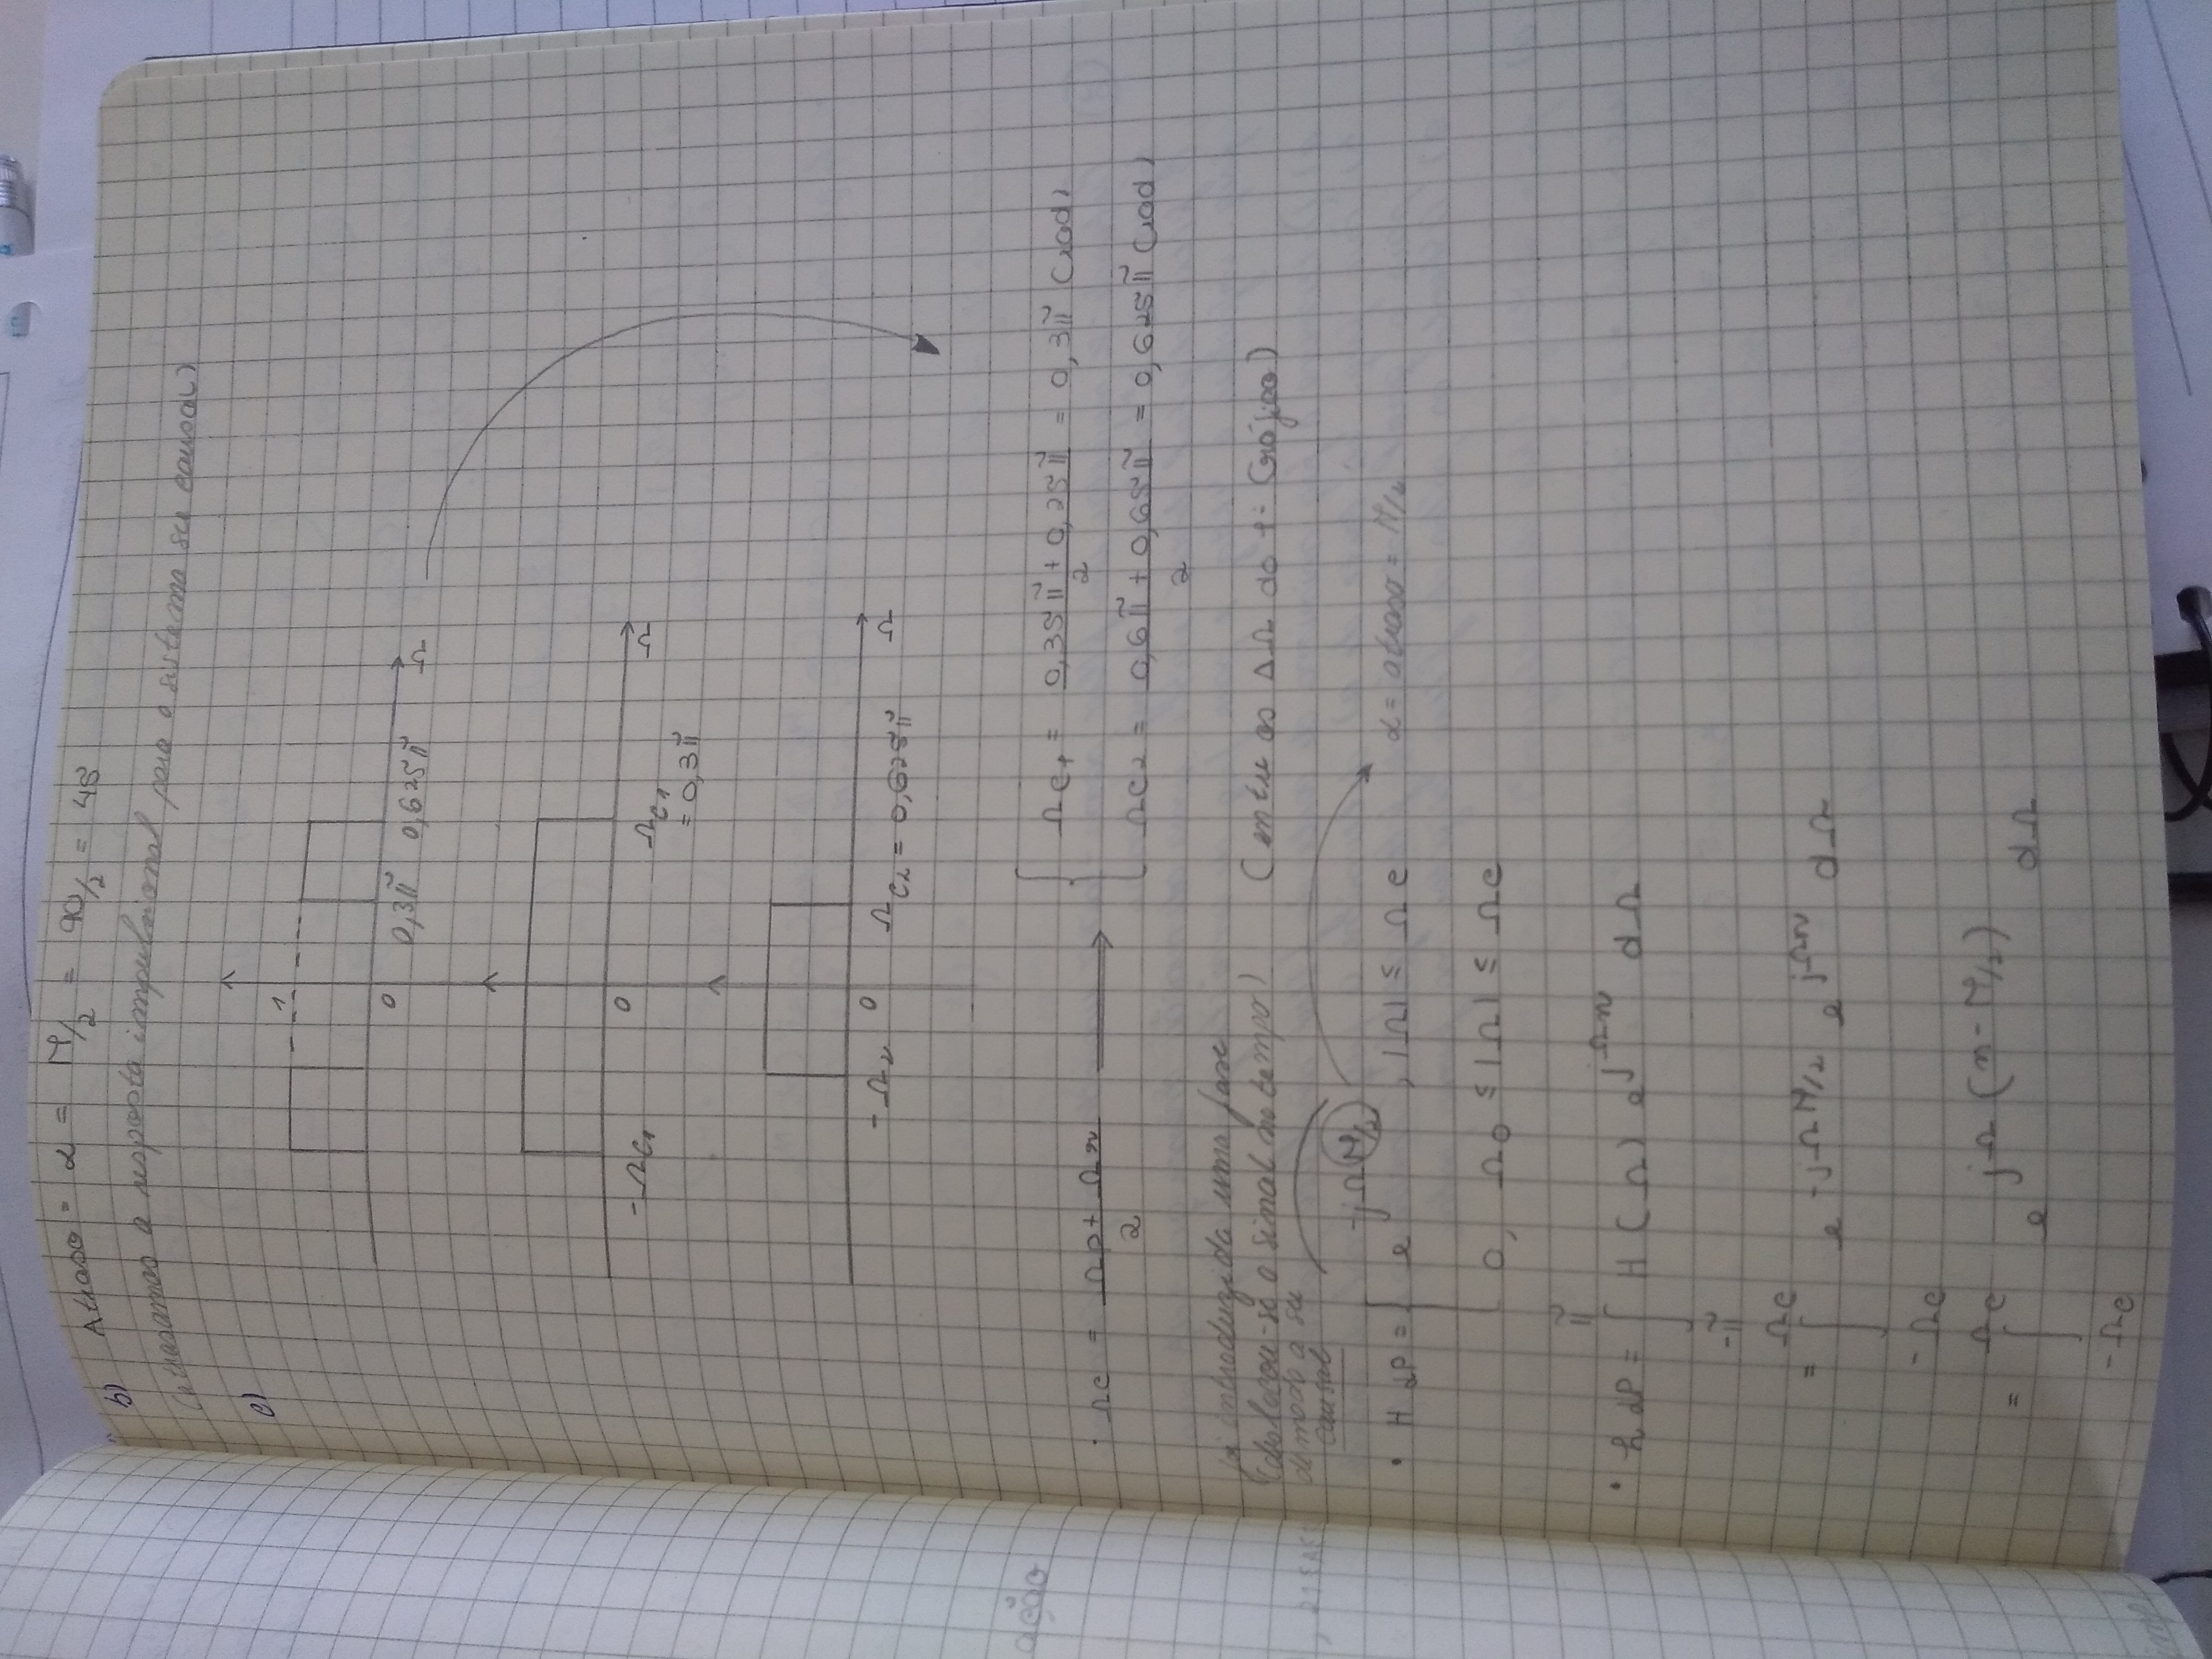 b) Atraso = α = M/2 = 90/2 = 45
(atrasamos a resposta impulsional para o sistema ser causal)
c)
1
0 0,3π 0,625π Ω
-Ωc1 0 Ωc1 = 0,3π Ω
-Ω2 0 Ωc2 = 0,625π Ω
· Ωc = Ωp + Ωr / 2 ⟶ { Ωc1 = 0,35π + 0,25π / 2 = 0,3π (rad)
Ωc2 = 0,6π + 0,65π / 2 = 0,625π (rad)
introduzida uma fase
(deslocou-se o sinal no tempo) (entre as ΔΩ do
de modo a ser
causal
· H dP = { e -jΩ M/2 , |Ω| ≤ Ωc α = atraso = M/2
0, Ω0 ≤ |Ω| ≤ Ωc
· h dP = ∫ -π π H(Ω) e jΩn dΩ
= ∫ -Ωc Ωc e -jΩM/2 e jΩn dΩ
= ∫ -Ωc Ωc e jΩ(n - M/2) dΩ
ação